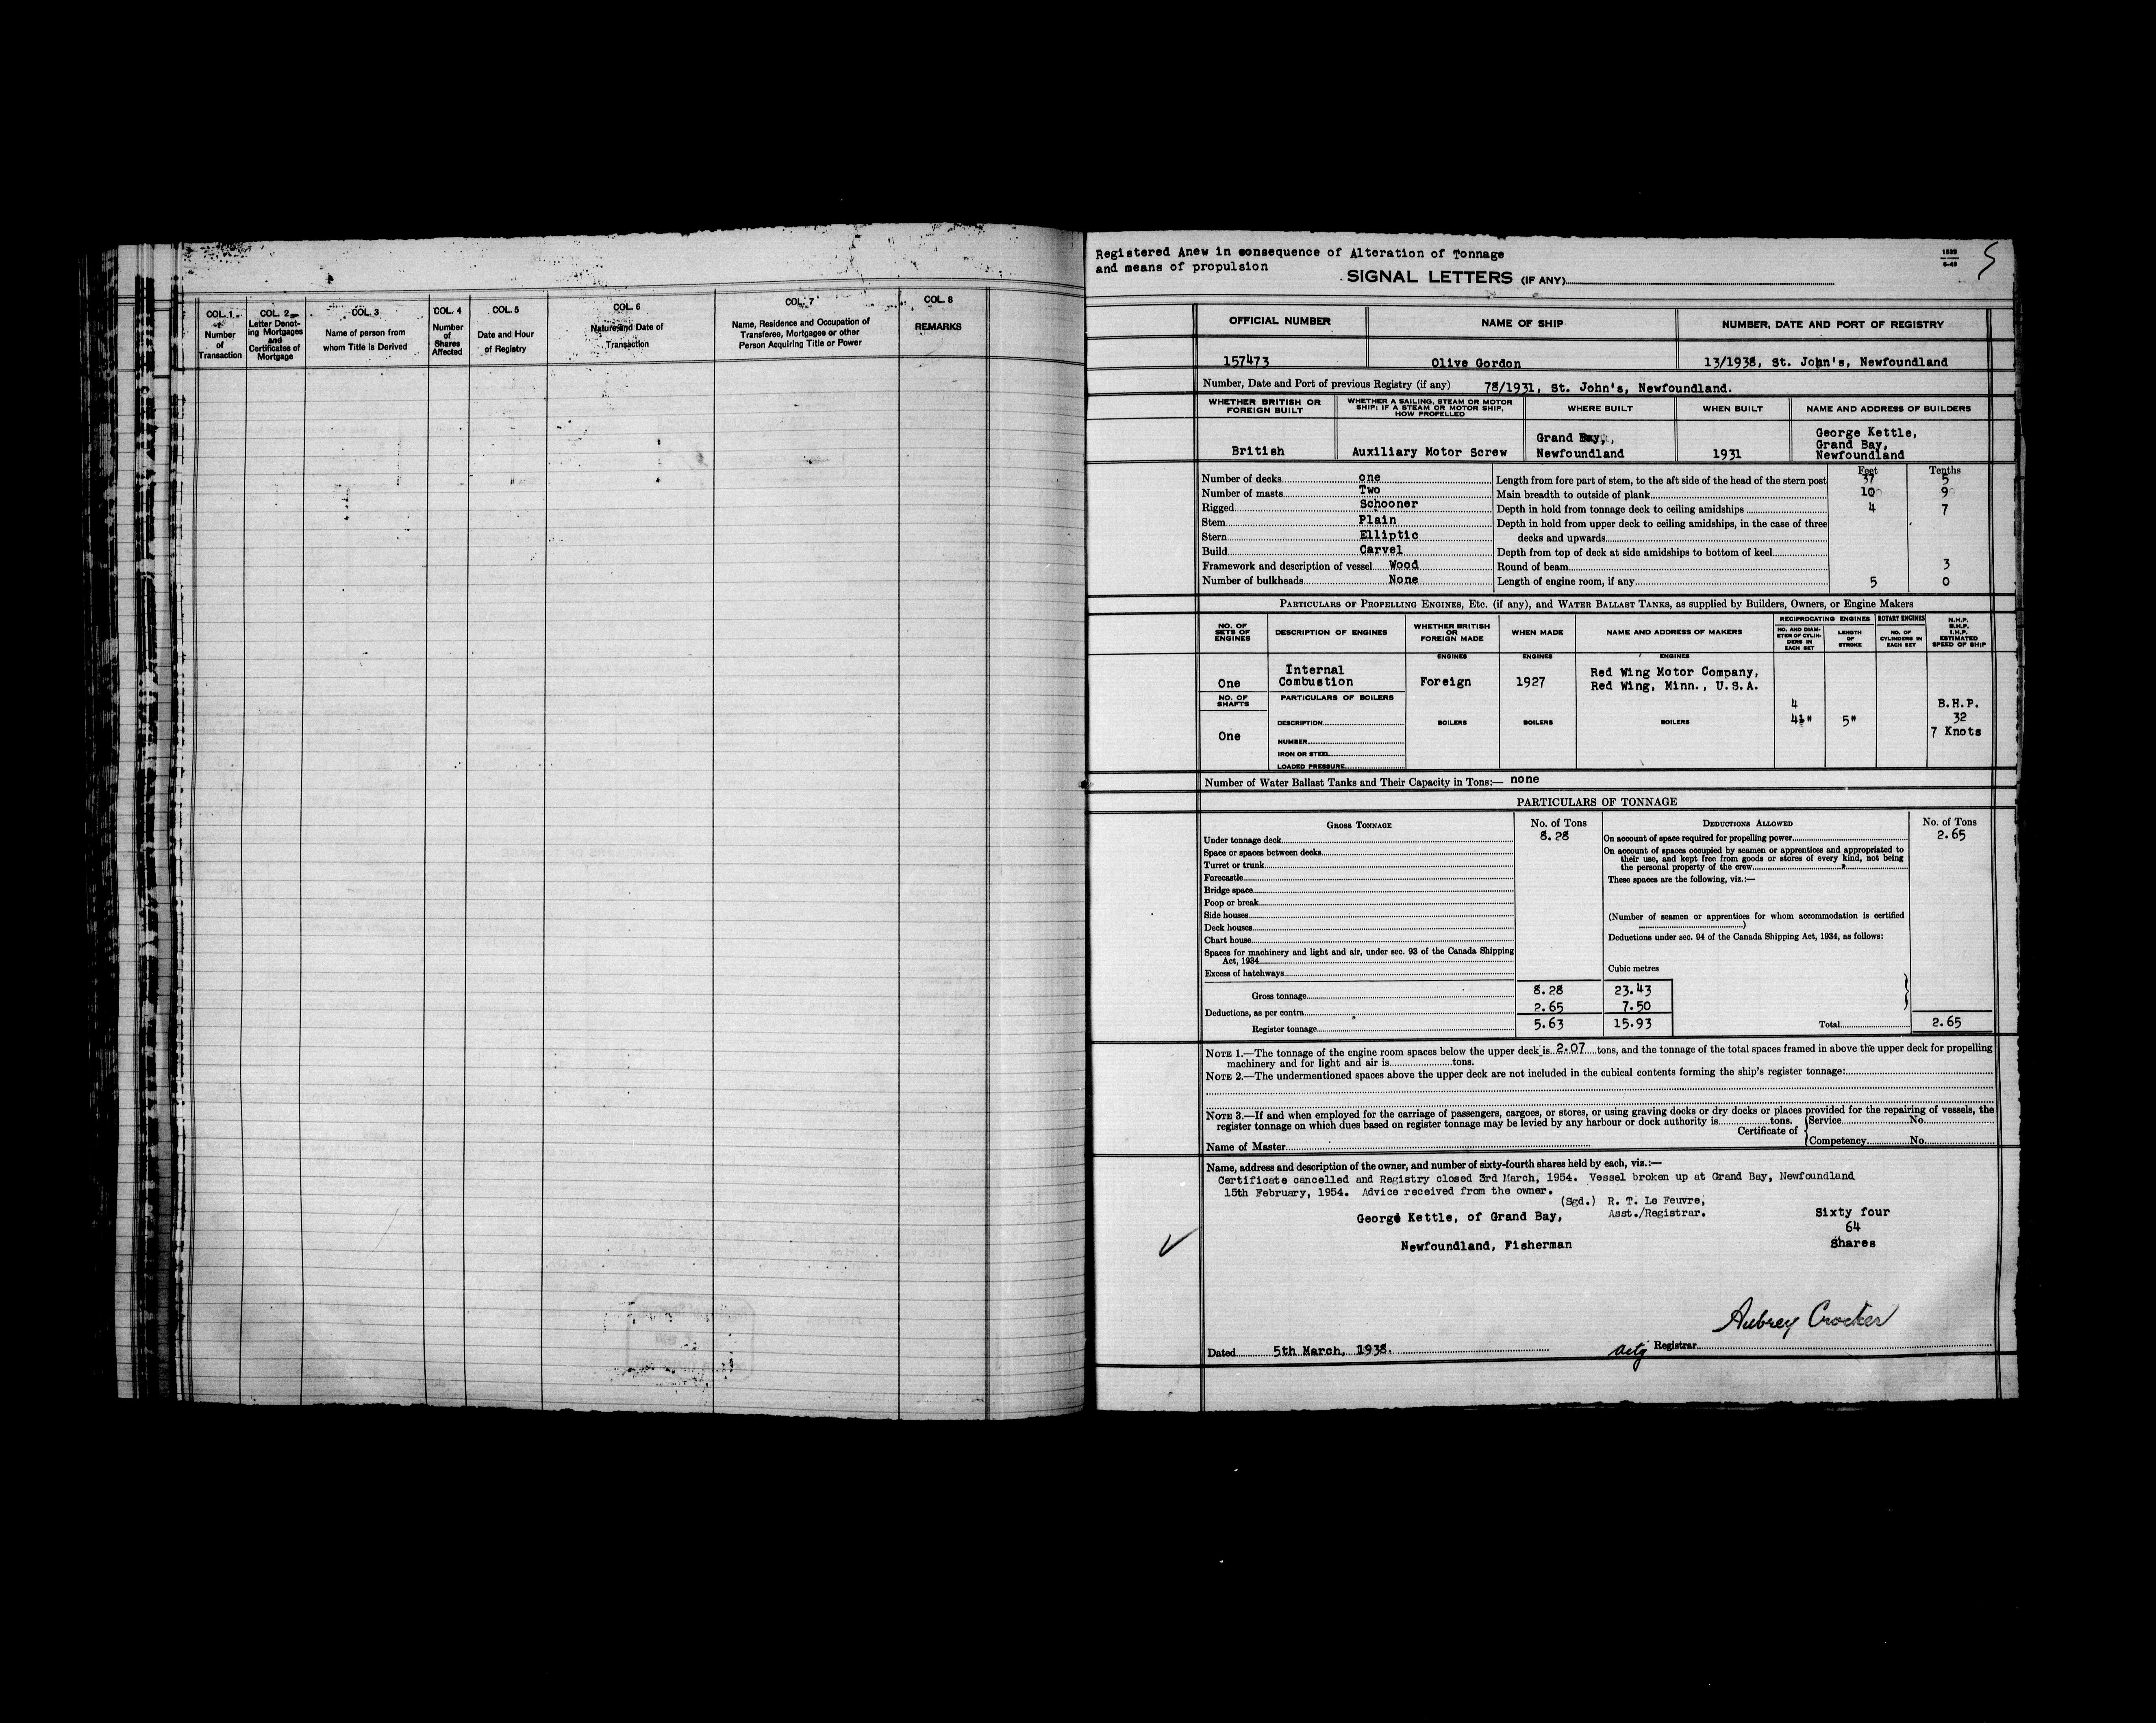 COL. 1
Number
of
Transaction
COL. 2
Letter Denot-
ing Mortgages
and
Certificates of
Mortgage
COL. 3
Name of person from
whom Title is Derived
COL. 4
Number
of
Shares
Affected
COL. 5
Date and Hour
of Registry
COL. 6
Nature and Date of
Transaction
COL. 7
Name, Residence and Occupation of
Transferee, Mortgagee or other
Person Acquiring Title or Power
COL. 8
REMARKS
Registered Anew in consequence of Alteration of Tonnage
and means of propulsion
SIGNAL LETTERS (IF ANY)
5
OFFICIAL NUMBER
NAME OF SHIP
NUMBER, DATE AND PORT OF REGISTRY
157473
Olive Gordon
13/1938, St. John's, Newfoundland
Number, Date and Port of previous Registry (if any) 78/1931, St. John's, Newfoundland.
WHETHER BRITISH OR
FOREIGN BUILT
WHETHER A SAILING, STEAM OR MOTOR
SHIP; IF A STEAM OR MOTOR SHIP,
HOW PROPELLED
WHERE BUILT
WHEN BUILT
NAME AND ADDRESS OF BUILDERS
British
Auxiliary Motor Screw
Grand Bay,
Newfoundland
1931
George Kettle,
Grand Bay,
Newfoundland
Feet Tenths
Number of decks one
Number of masts Two
Rigged Schooner
Stem Plain
Stern Elliptic
Build Carvel
Framework and description of vessel Wood
Number of bulkheads None
Length from fore part of stem, to the aft side of the head of the stern post 37 5
Main breadth to outside of plank 10 9
Depth in hold from tonnage deck to ceiling amidships 4 7
Depth in hold from upper deck to ceiling amidships, in the case of three
decks and upwards
Depth from top of deck at side amidships to bottom of keel
Round of beam 3
Length of engine room, if any 5 0
PARTICULARS OF PROPELLING ENGINES, ETC. (if any), and WATER BALLAST TANKS, as supplied by Builders, Owners, or Engine Makers
NO. OF
SETS OF
ENGINES
DESCRIPTION OF ENGINES
WHETHER BRITISH
OR
FOREIGN MADE
WHEN MADE
NAME AND ADDRESS OF MAKERS
RECIPROCATING ENGINES
NO. AND DIAM-
ETER OF CYLIN-
DERS IN
EACH SET
LENGTH
OF
STROKE
ROTARY ENGINES
NO. OF
CYLINDERS IN
EACH SET
N.H.P.
B.H.P.
I.H.P.
ESTIMATED
SPEED OF SHIP
ENGINES
ENGINES
ENGINES
One
Internal
Combustion
Foreign
1927
Red Wing Motor Company,
Red Wing, Minn., U.S.A.
NO. OF
SHAFTS
PARTICULARS OF BOILERS
One
DESCRIPTION
NUMBER
IRON OR STEEL
LOADED PRESSURE
BOILERS
BOILERS
BOILERS
4
5"
B.H.P.
32
7 Knots
Number of Water Ballast Tanks and Their Capacity in Tons:— none
PARTICULARS OF TONNAGE
GROSS TONNAGE
No. of Tons
Under tonnage deck 8.28
Space or spaces between decks
Turret or trunk
Forecastle
Bridge space
Poop or break
Side houses
Deck houses
Chart house
Spaces for machinery and light and air, under sec. 93 of the Canada Shipping
Act, 1934
Excess of hatchways
Gross tonnage 8.28 23.43
Deductions, as per contra 2.65 7.50
Register tonnage 5.63 15.93
DEDUCTIONS ALLOWED
No. of Tons
On account of space required for propelling power 2.65
On account of spaces occupied by seamen or apprentices and appropriated to
their use, and kept free from goods or stores of every kind, not being
the personal property of the crew
These spaces are the following, viz.:—
(Number of seamen or apprentices for whom accommodation is certified
)
Deductions under sec. 94 of the Canada Shipping Act, 1934, as follows:
Cubic metres
Total 2.65
NOTE 1.—The tonnage of the engine room spaces below the upper deck is 2.07 tons, and the tonnage of the total spaces framed in above the upper deck for propelling
machinery and for light and air is tons.
NOTE 2.—The undermentioned spaces above the upper deck are not included in the cubical contents forming the ship's register tonnage:
NOTE 3.—If and when employed for the carriage of passengers, cargoes, or stores, or using graving docks or dry docks or places provided for the repairing of vessels, the
register tonnage on which dues based on register tonnage may be levied by any harbour or dock authority is tons.
Name of Master
Certificate of
Service No.
Competency No.
Name, address and description of the owner, and number of sixty-fourth shares held by each, viz.:—
Certificate cancelled and Registry closed 3rd March, 1954. Vessel broken up at Grand Bay, Newfoundland
15th February, 1954. Advice received from the owner.
(Sgd.) R. T. Le Feuvre,
Asst./Registrar.
George Kettle, of Grand Bay,
Newfoundland, Fisherman
Sixty four
64
Shares
Aubrey Crocker
Dated 5th March, 1938.
Actg Registrar